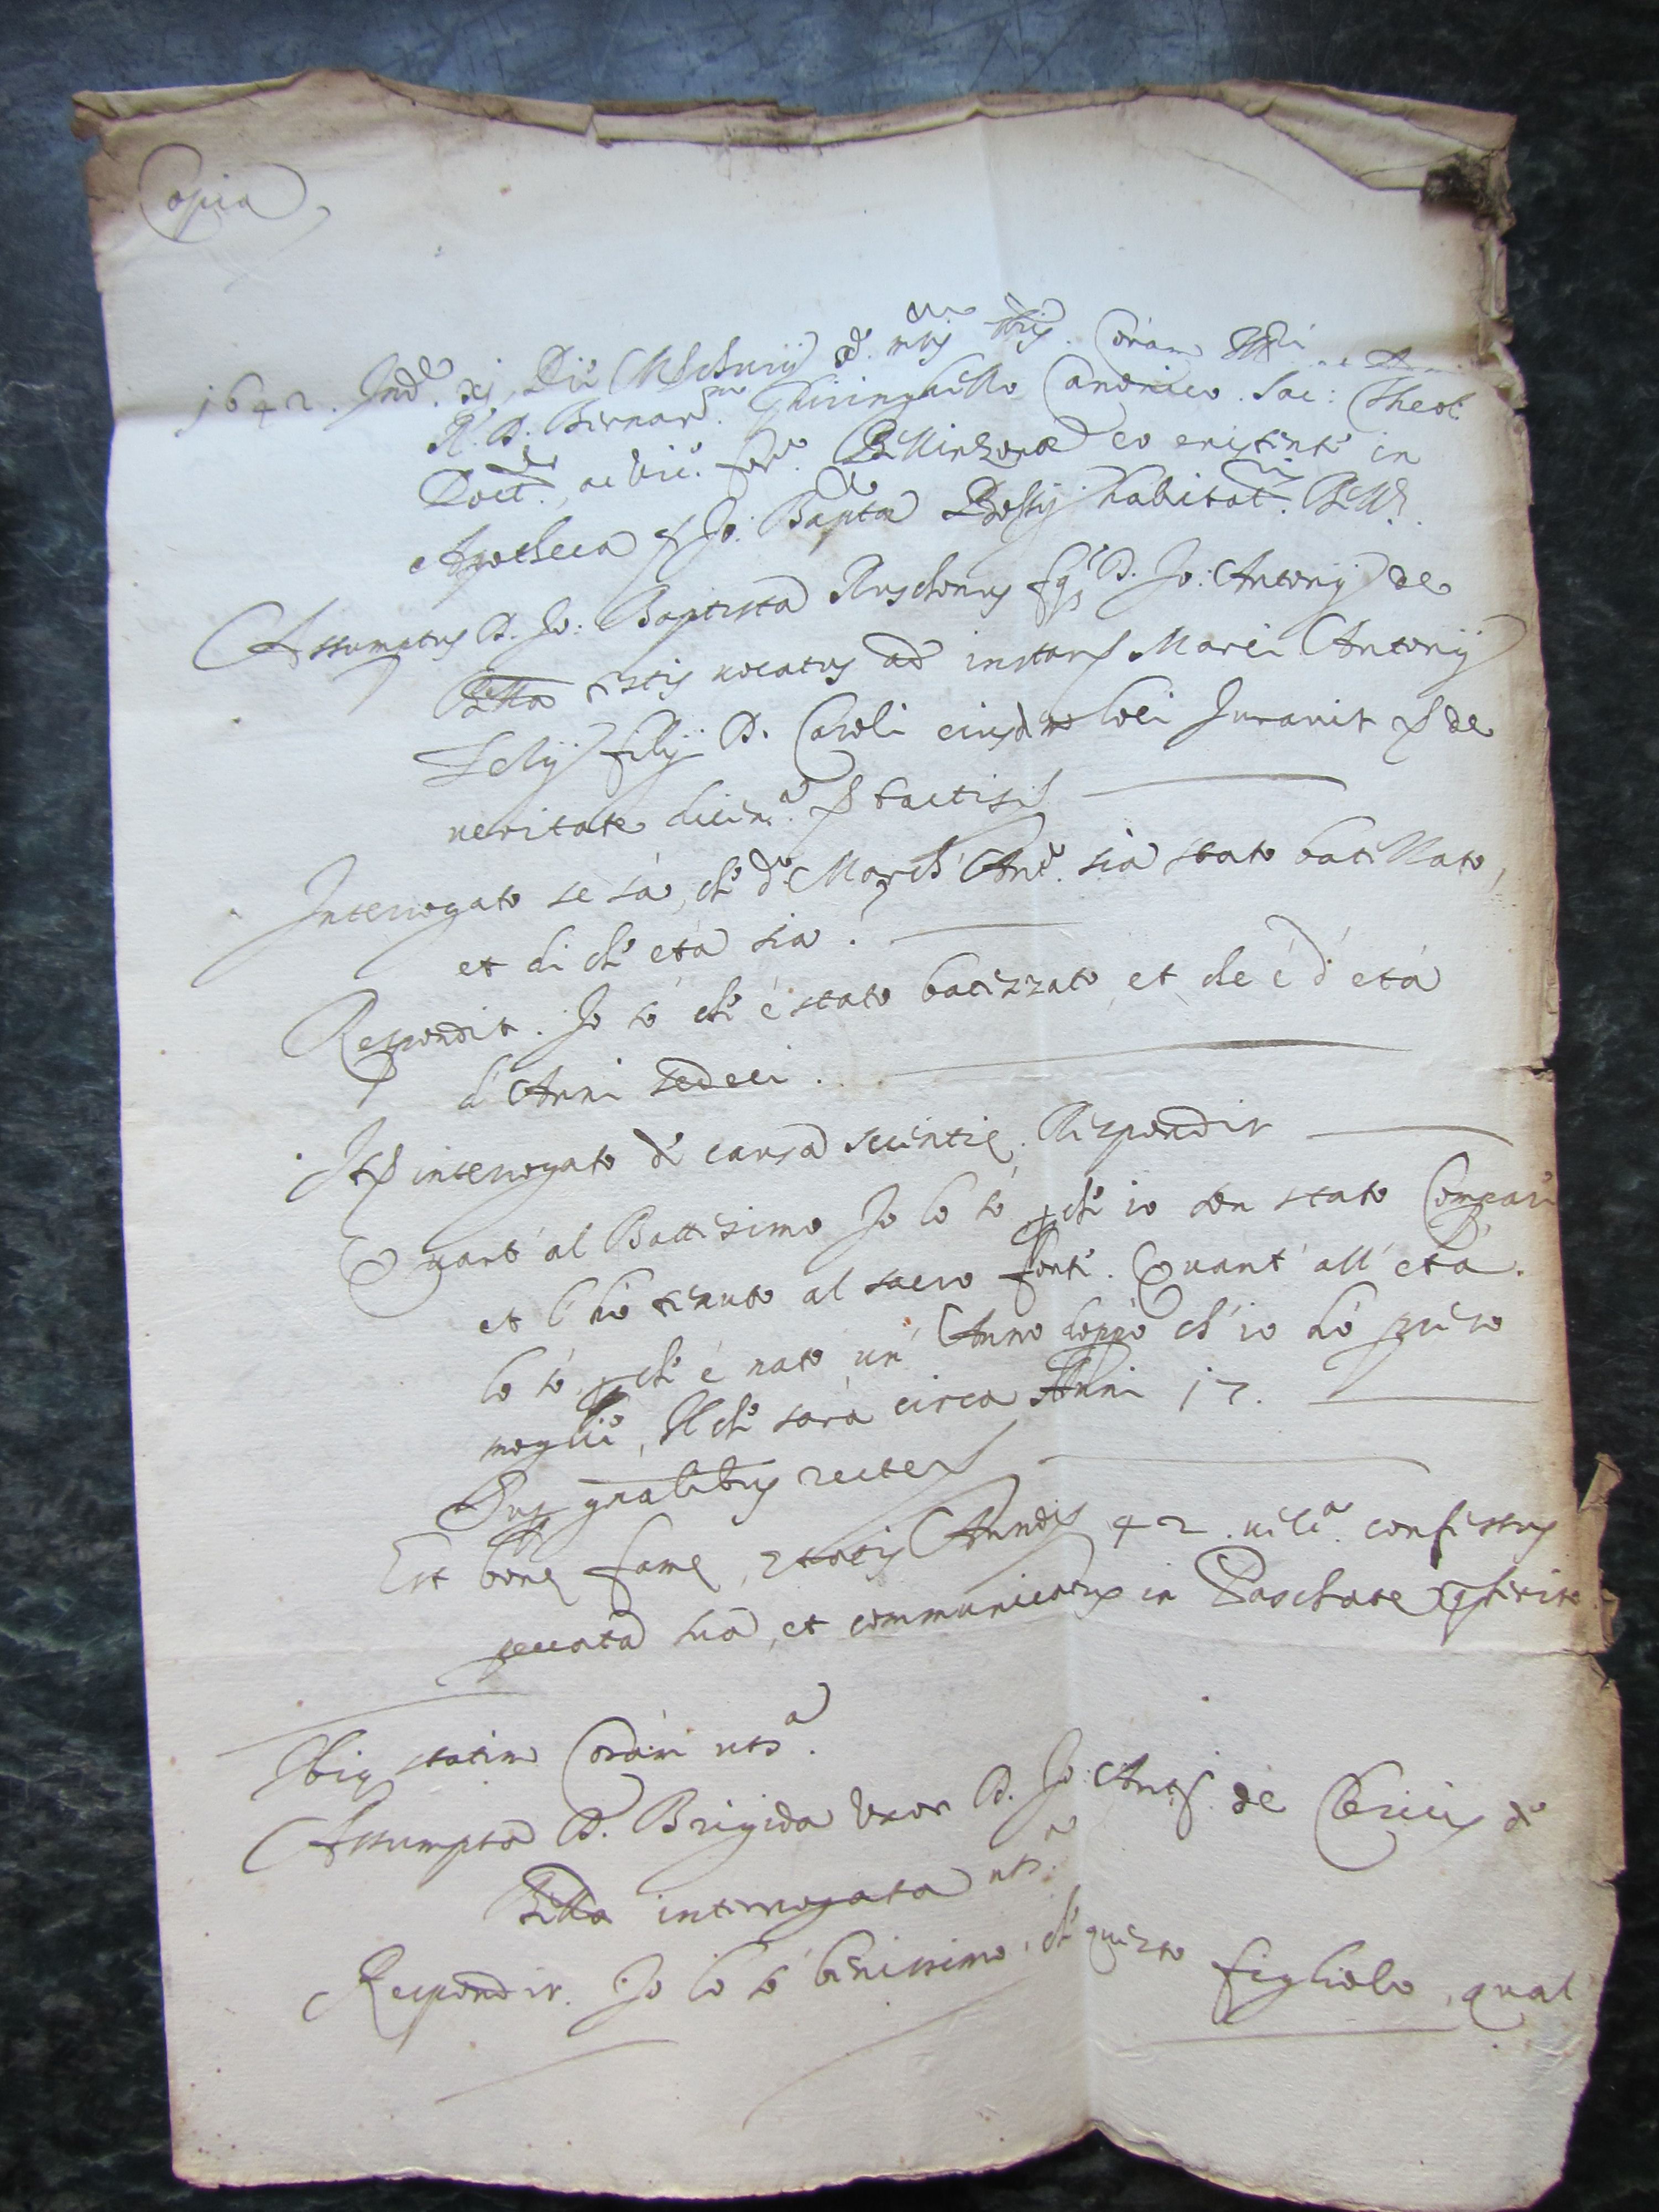 Copia
1642. Ind.e xj, Die Mercurij
R. D. Bernar.no Ghiringhello Canonico. Sac: Theol:
Doct.re, ac Vic.o for.o Bellinzonæ eo existente in
Apotheca Jo: Bapta habitat. Bell.
Assumptus D. Jo: Baptista Ruschonus fq. D. Jo: Antonij de
testis vocatus ad instans Marci Antonij
filij D. Caroli eiusdm loci Juravit p de
veritate dicen.a p tactis
Interrogato se sà, che d.o March' Ant.o sia stato batezzato,
et di che età sia.
Respondit. Io sò che è stato batezzato, et che è d'età
d'Anni sedeci.
Itp interrogato de causa scientię. Respondit
Quant' al Battesimo Io lo sò, pche io son stato Compare
et l'hò tenuto al sacro fonte. Quant' all' età.
lo sò, pche è nato un' Anno doppò ch'io hò preso
moglie, Il che sarà circa Anni 17.
Sup gnalibus recte
Est bonę famę, etatis Annor 42. confessus
peccata sua, et communicatus in Paschate
Ibiq statim Coram uts.a
Assumpta D. Brigida Uxor D. Jo: Ant. de Chericis de
interrogata uts.a
Respondit. Io lo sò benissimo, che questo figliolo, qual